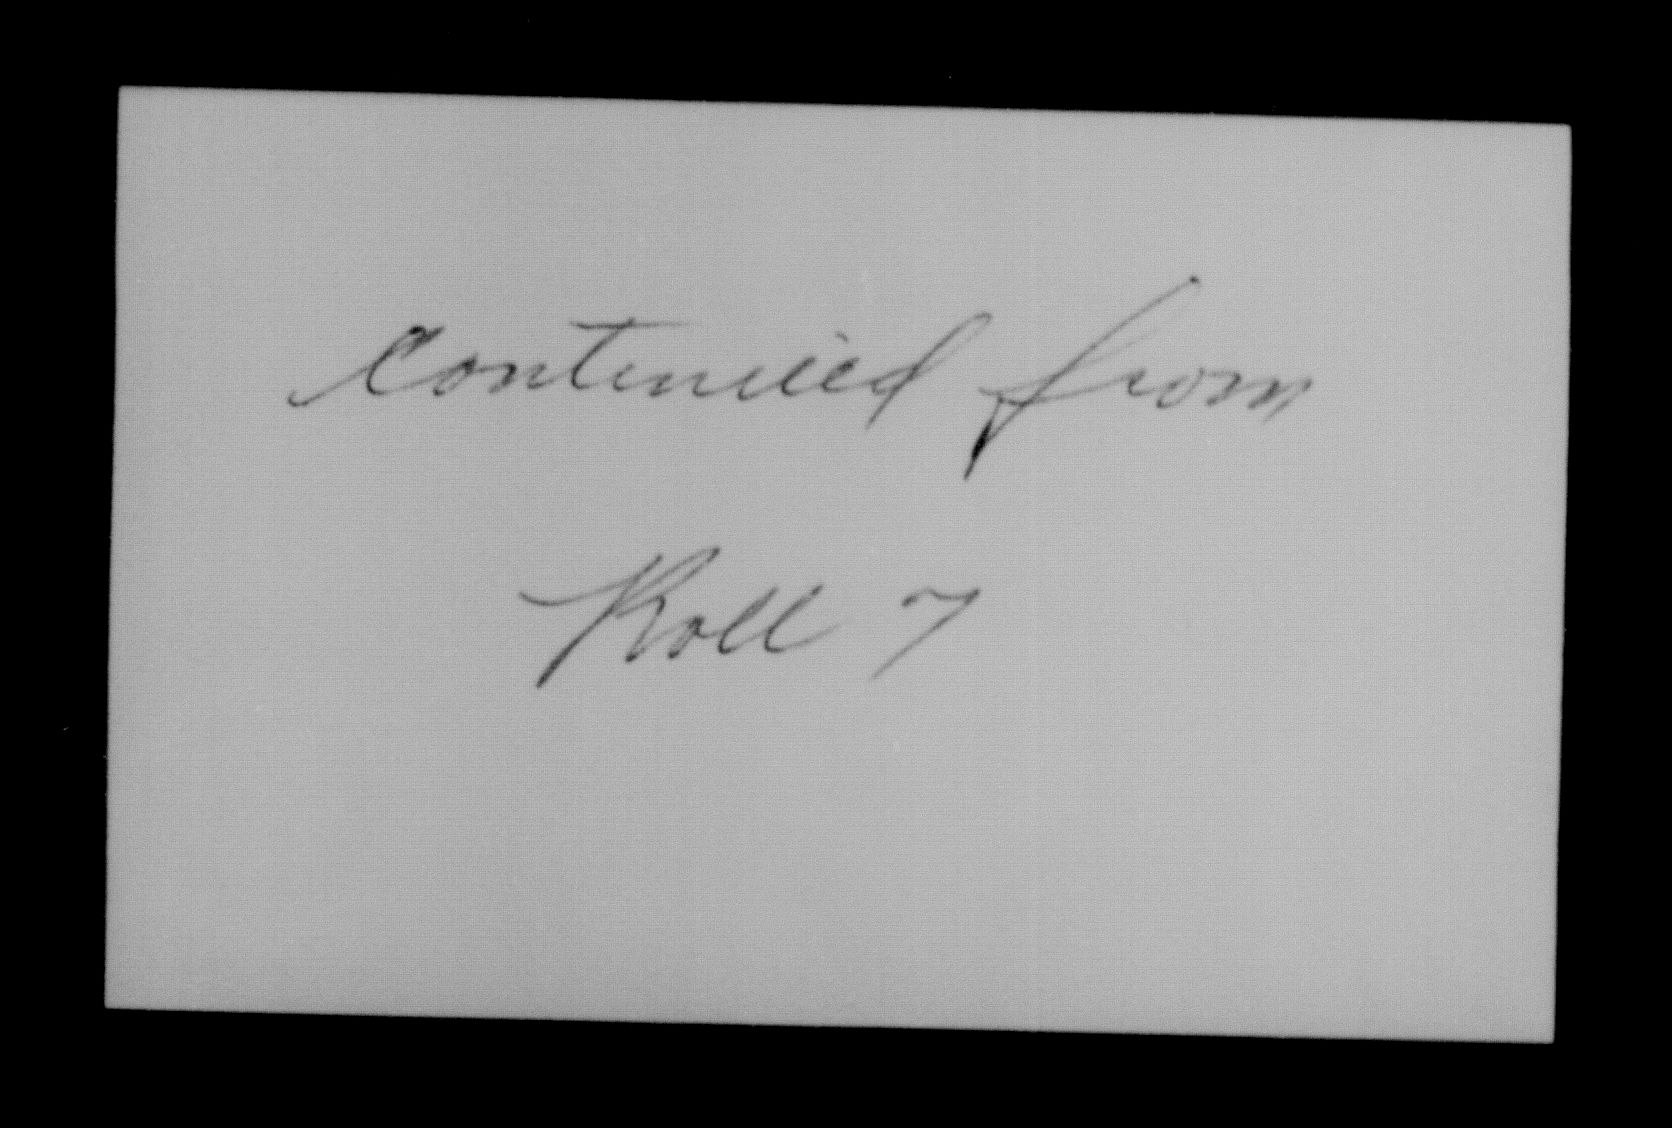 Continued from
Roll 7